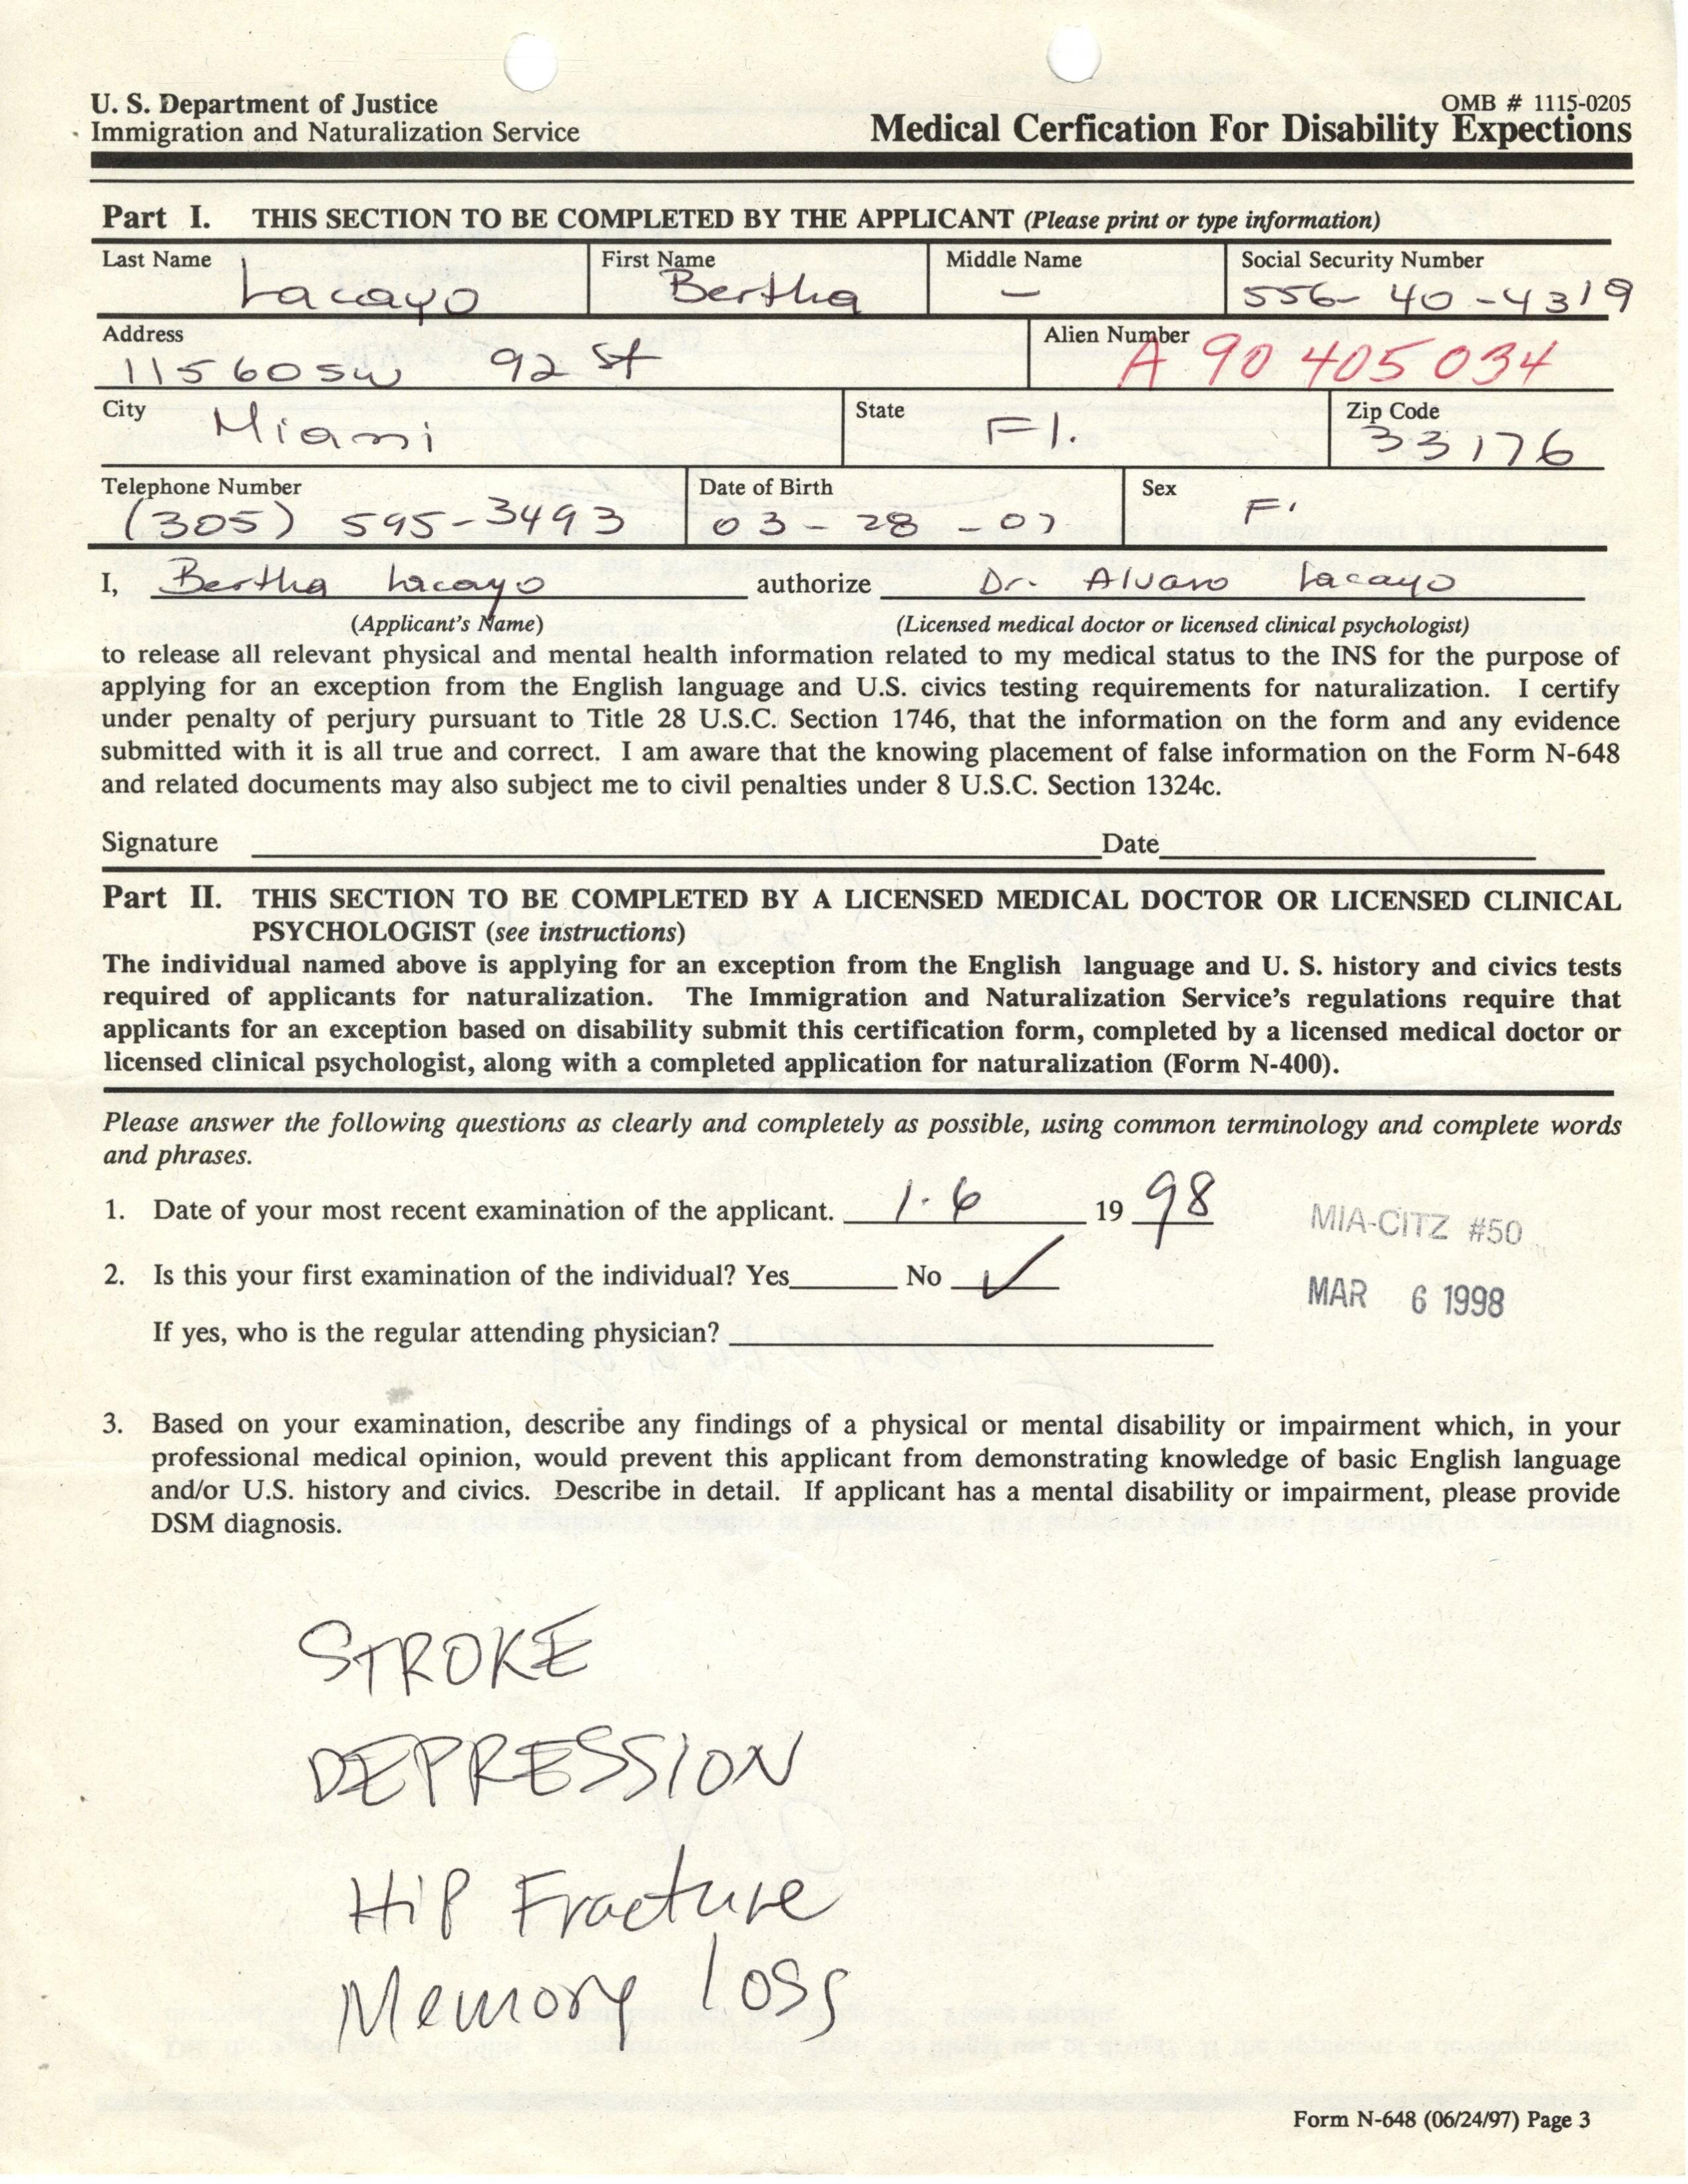 U. S. Department of Justice
Immigration and Naturalization Service
OMB # 1115-0205
Medical Cerfication For Disability Expections
Part I. THIS SECTION TO BE COMPLETED BY THE APPLICANT (Please print or type information)
Last Name First Name Middle Name Social Security Number
Lacayo Bertha – 556-40-4319
Address Alien Number
11560 SW 92 St A 90 405 034
City State Zip Code
Miami Fl. 33176
Telephone Number Date of Birth Sex
(305) 595-3493 03-28-07 F.
I, Bertha Lacayo authorize Dr. Alvaro Lacayo
(Applicant's Name) (Licensed medical doctor or licensed clinical psychologist)
to release all relevant physical and mental health information related to my medical status to the INS for the purpose of
applying for an exception from the English language and U.S. civics testing requirements for naturalization. I certify
under penalty of perjury pursuant to Title 28 U.S.C. Section 1746, that the information on the form and any evidence
submitted with it is all true and correct. I am aware that the knowing placement of false information on the Form N-648
and related documents may also subject me to civil penalties under 8 U.S.C. Section 1324c.
Signature Date
Part II. THIS SECTION TO BE COMPLETED BY A LICENSED MEDICAL DOCTOR OR LICENSED CLINICAL
PSYCHOLOGIST (see instructions)
The individual named above is applying for an exception from the English language and U. S. history and civics tests
required of applicants for naturalization. The Immigration and Naturalization Service's regulations require that
applicants for an exception based on disability submit this certification form, completed by a licensed medical doctor or
licensed clinical psychologist, along with a completed application for naturalization (Form N-400).
Please answer the following questions as clearly and completely as possible, using common terminology and complete words
and phrases.
1. Date of your most recent examination of the applicant. 1.6 19 98
MIA-CITZ #50
2. Is this your first examination of the individual? Yes No ✓
MAR 6 1998
If yes, who is the regular attending physician?
3. Based on your examination, describe any findings of a physical or mental disability or impairment which, in your
professional medical opinion, would prevent this applicant from demonstrating knowledge of basic English language
and/or U.S. history and civics. Describe in detail. If applicant has a mental disability or impairment, please provide
DSM diagnosis.
STROKE
DEPRESSION
Hip Fracture
Memory loss
Form N-648 (06/24/97) Page 3